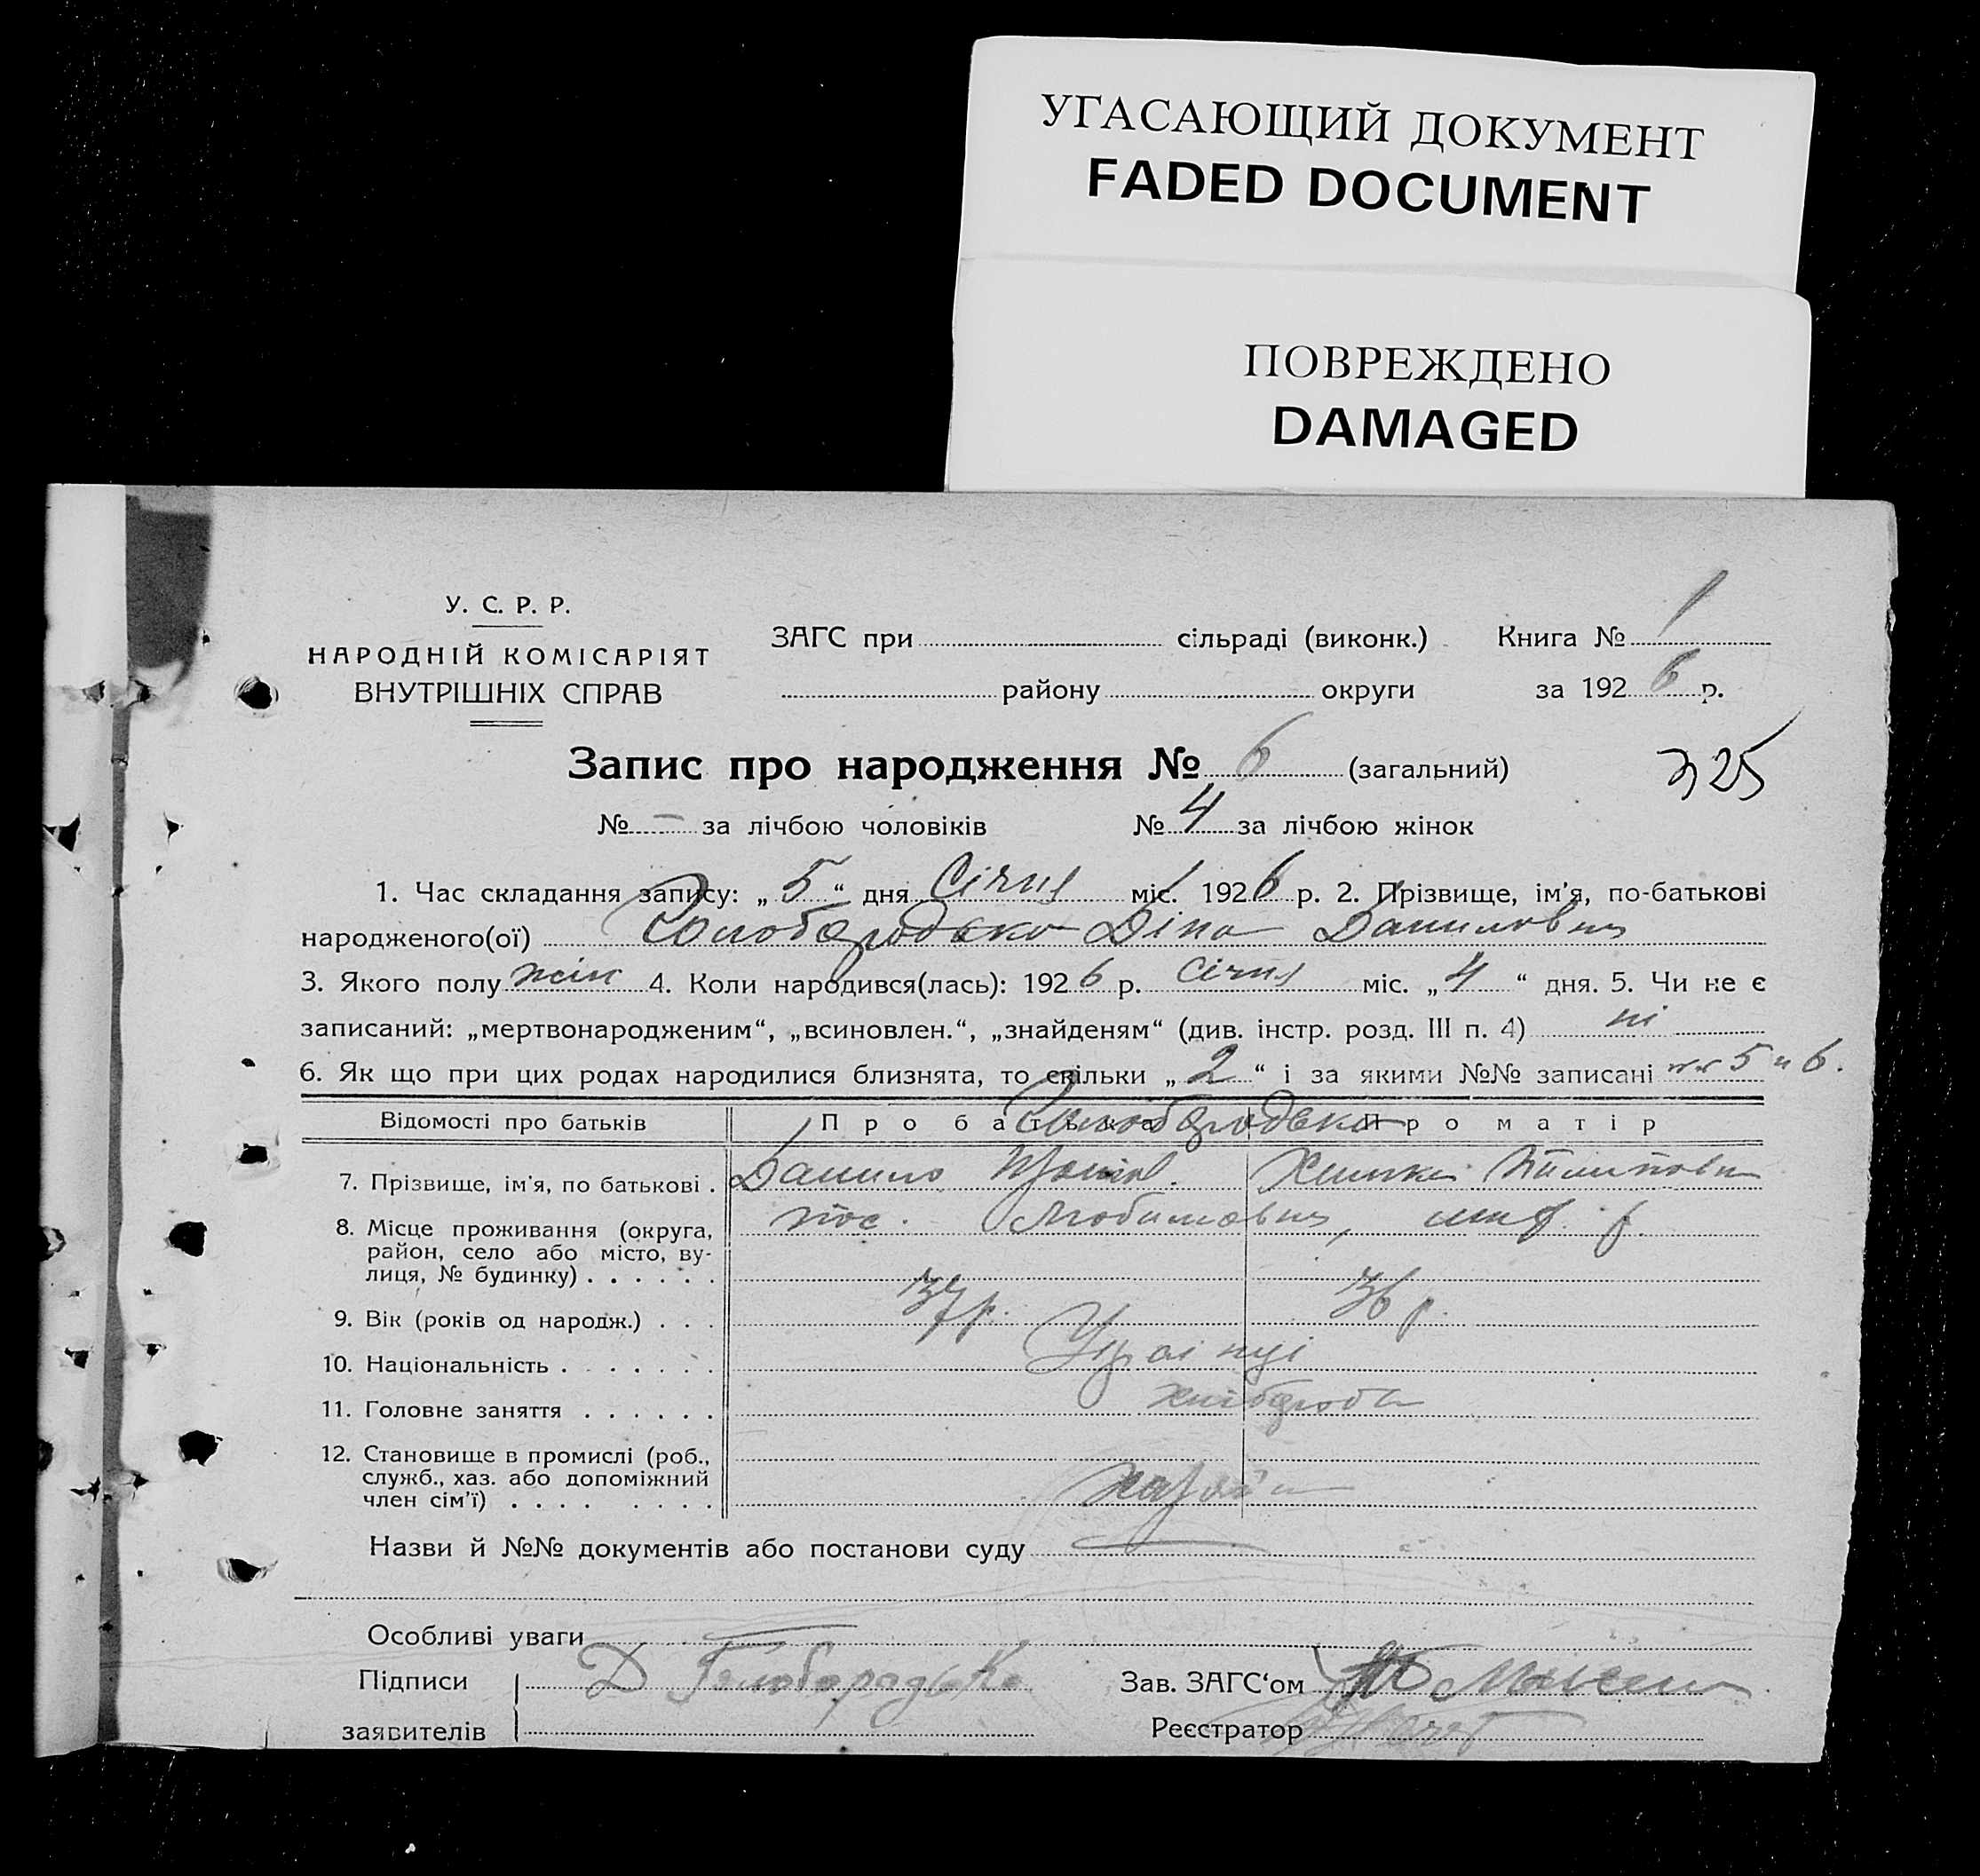 УГАСАЮЩИЙ ДОКУМЕНТ
FADED DOCUMENT
ПОВРЕЖДЕНО
DAMAGED
У. С. Р. Р.
НАРОДНІЙ КОМІСАРІЯТ
ВНУТРІШНІХ СПРАВ
ЗАГС при сільраді (виконк.) Книга № 1
району округи за 1926 р.
Запис про народження № 6 (загальний)
325
№ – за лічбою чоловіків № 4 за лічбою жінок
1. Час складання запису: „5“ дня Січня міс. 1926 р. 2. Прізвище, ім'я, по-батькові
народженого(ої) Голобородько Діна Даниловна
3. Якого полу жін 4. Коли народився(лась): 1926 р. Січня міс. „4“ дня. 5. Чи не є
записаний: „мертвонародженим“, „всиновлен.“, „знайденям“ (див. інстр. розд. III п. 4) ні
6. Як що при цих родах народилися близнята, то скільки „2“ і за якими №№ записані 5 и 6.
Відомості про батьків Про батька Про матір
Голобородько
7. Прізвище, ім'я, по батькові . Данило
8. Місце проживання (округа,
район, село або місто, ву-
лиця, № будинку) . . . . . .
пос.
9. Вік (років од народж.) . . . 37 р. 36 р.
10. Національність . . . . . . . Українці
11. Головне заняття . . . . . . хлібороби
12. Становище в промислі (роб.,
служб., хаз. або допоміжний
член сім'ї) . . . . . . . .
Назви й №№ документів або постанови суду
Особливі уваги
Підписи Д Голобородько Зав. ЗАГС'ом
заявителів Реєстратор